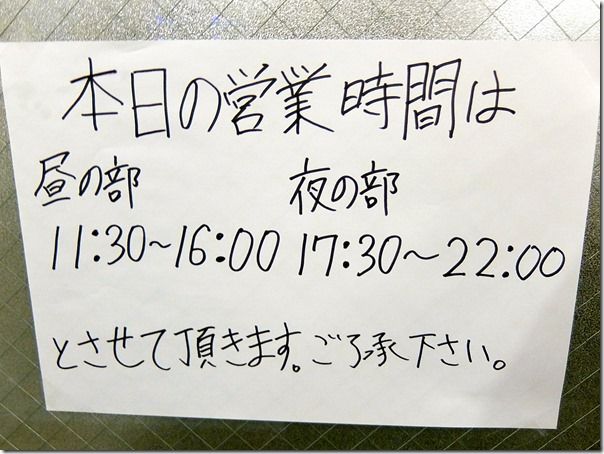 本日の営業時間は
昼の部 夜の部
11:30~16:00 17:30~22:00
とさせて頂きます。ご了承下さい。